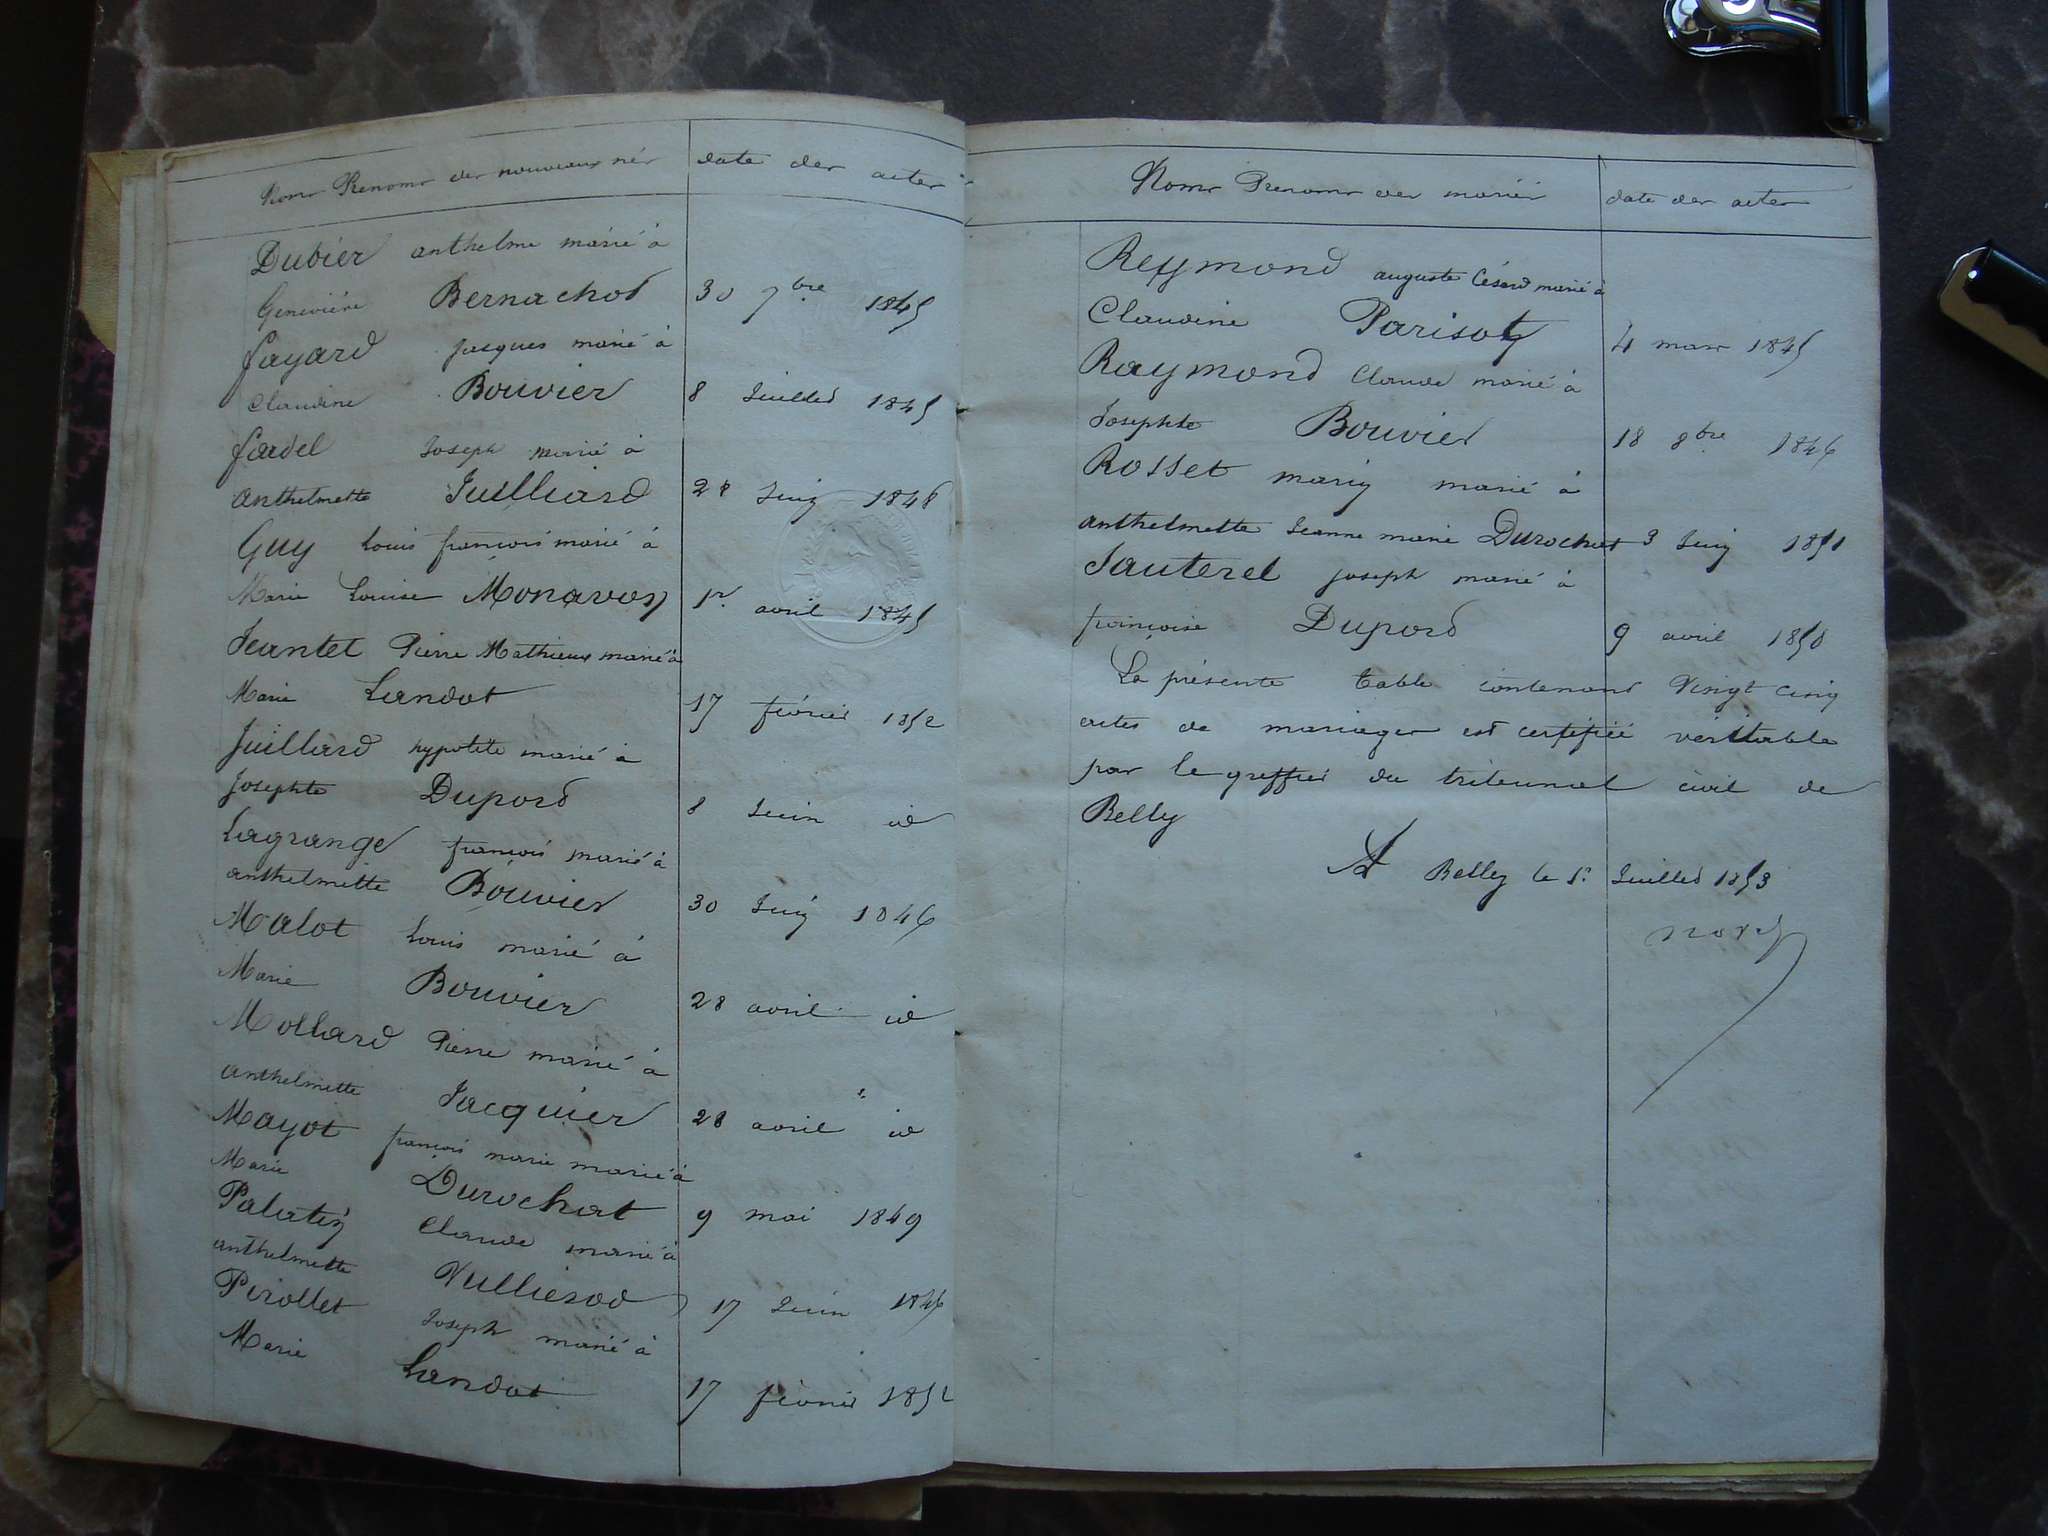 Noms Prenoms des nouveaux nés
date des actes
Dubier anthelme marié à
Genevière Bernachod 30 7bre 1845
fayard jacques marié à
Claudine Bouvier 8 Juillet 1845
fardel Joseph marié à
anthelmette Juilliard 28 Juin 1848
Guy Louis françois marié à
Marie Louise Monavon 1r. avril 1845
Jeantet Pierre Mathieux marié à
Marie Landot 17 février 1852
Juillard hypolite marié à
Josephte Dupord 8 Juin id
Lagrange françois marié à
anthelmette Bouvier 30 Juin 1846
Malot Louis marié à
Marie Bouvier 28 avril id
Mollard Pierre marié à
anthelmette Jacquier 28 avril id
Mayot françois marie marié à
Marie Durochat 9 mai 1849
Palatin Claude marié à
anthelmette Vulliesod 17 Juin 1846
Pirollet Joseph marié à
Marie Landot 17 février 1852
Noms Prenoms des mariés
date des actes
Reymond auguste César marié à
Claudine Parisot 4 mars 1845
Raymond Claude marié à
Josephte Bouvier 18 8bre 1846
Rosset marin marié à
anthelmette Jeanne marie Durochat 3 Juin 1851
Sauterel joseph marié à
françoise Dupord 9 avril 1850
La présente table contenant Vingt cinq
actes de mariages est certifiée véritable
par le greffier du tribunal civil de
Belley
A Belley le 1r. Juillet 1853